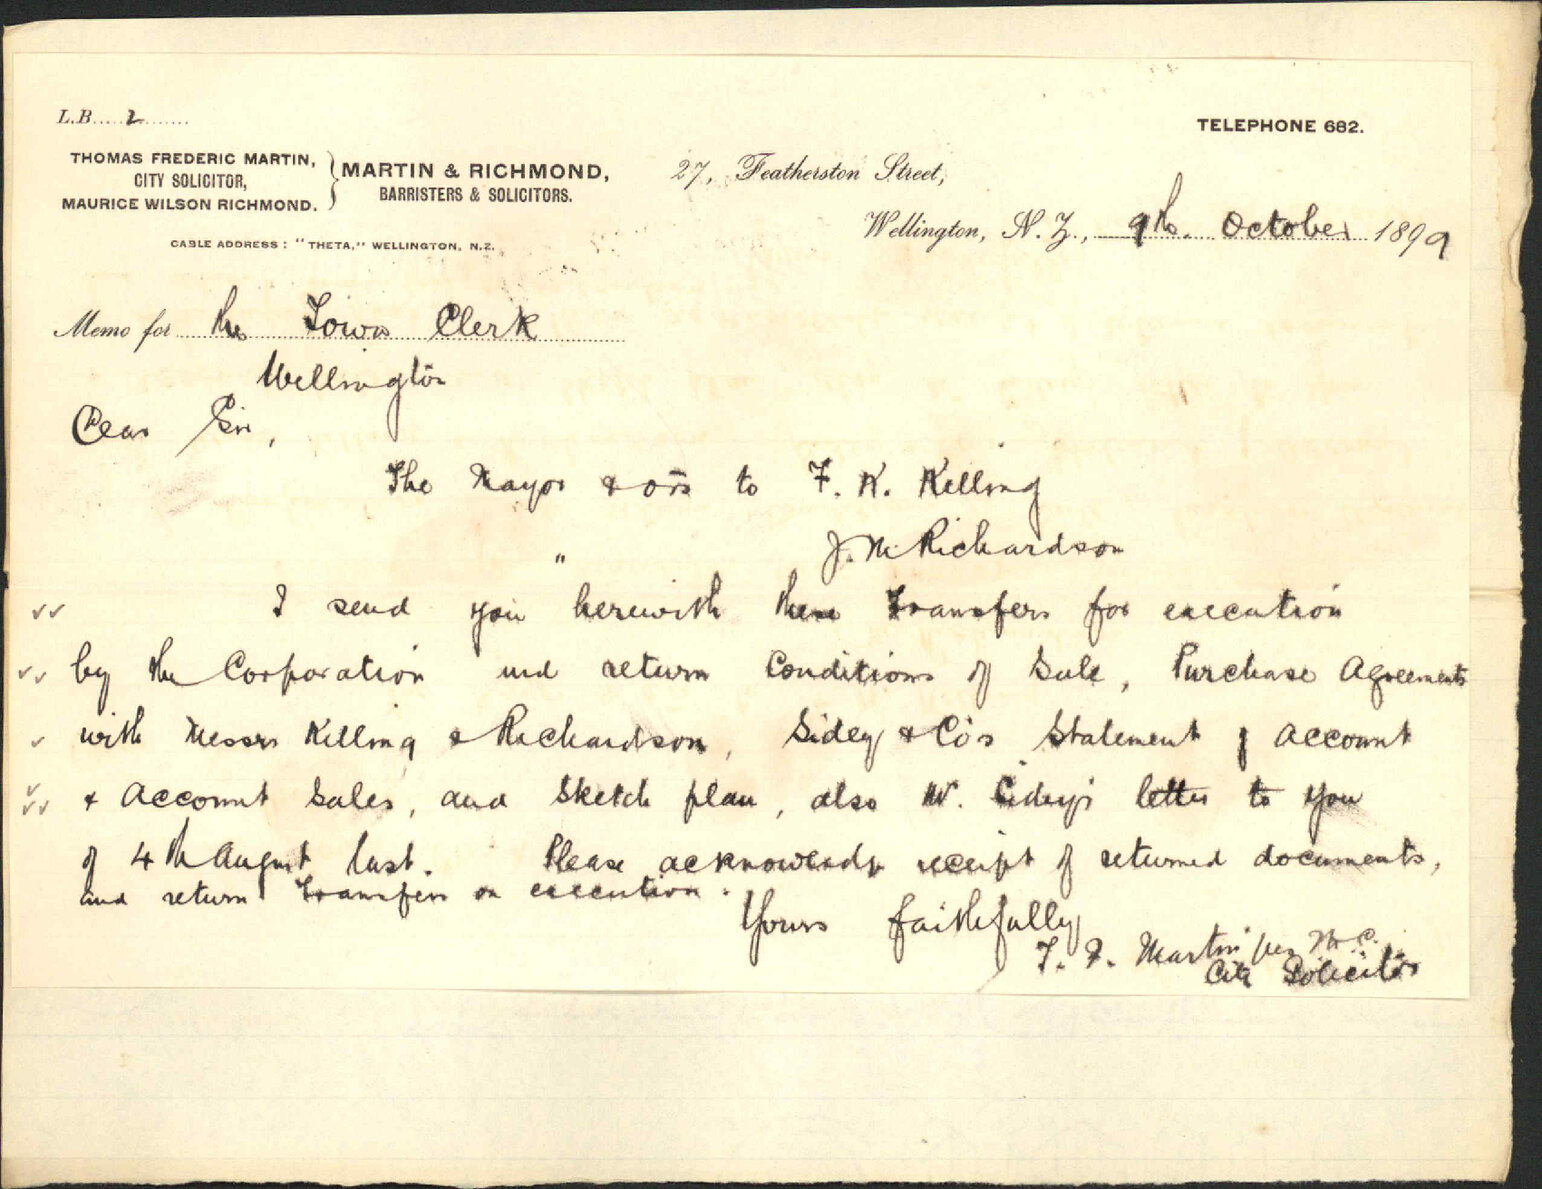 L.B. 2
TELEPHONE 682.
THOMAS FREDERIC MARTIN,
CITY SOLICITOR,
MAURICE WILSON RICHMOND.
MARTIN & RICHMOND,
BARRISTERS & SOLICITORS.
27, Featherston Street,
CABLE ADDRESS: "THETA," WELLINGTON, N.Z.
Wellington, N.Z., 9th. October 1899
Memo for the Town Clerk
Wellington
Dear Sir,
The Mayor & ors to F. K. Kelling
" J. M. Richardson
I send you herewith these Transfers for execution
by the Corporation and return Conditions of Sale, Purchase Agreements
with Messrs Kelling & Richardson, Sidey & Co's Statement of Account
& Account Sales, and Sketch plan, also W. Sidey's letter to you
of 4th August last. Please acknowledge receipt of returned documents,
and return Transfers on execution.
Yours faithfully
T. F. Martin per
City Solicitor